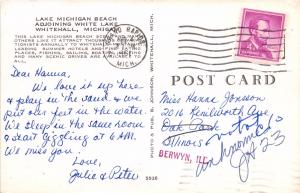 LAKE MICHIGAN BEACH
ADJOINING WHITE LAKE
WHITEHALL, MICHIGAN
THIS LAKE MICHIGAN BEACH
OTHERS LIKE IT ATTRACT THOUSANDS
TIONISTS ANNUALLY TO WHITEHALL
LEADING SUMMER HOTELS AND
PLACES. FISHING, SAILING, BOATING,
AND MANY SCENIC DRIVES ARE EASILY
Dear Hanna,
We love it up here
& play in the sand & we
put our feet in the water
We sleep in the same room
& start giggling at 6 AM.
We miss you.
Love,
Julie & Peter
GRAND RAPIDS
MICH.
PHOTO & PUB. B. JOHNSON, WHITEHALL, MICH.
5526
POST CARD
Miss Hanna Jonson
2016 Kenilworth Ave
Oak Park
Illinois
BERWYN, ILL.
Unknown
23